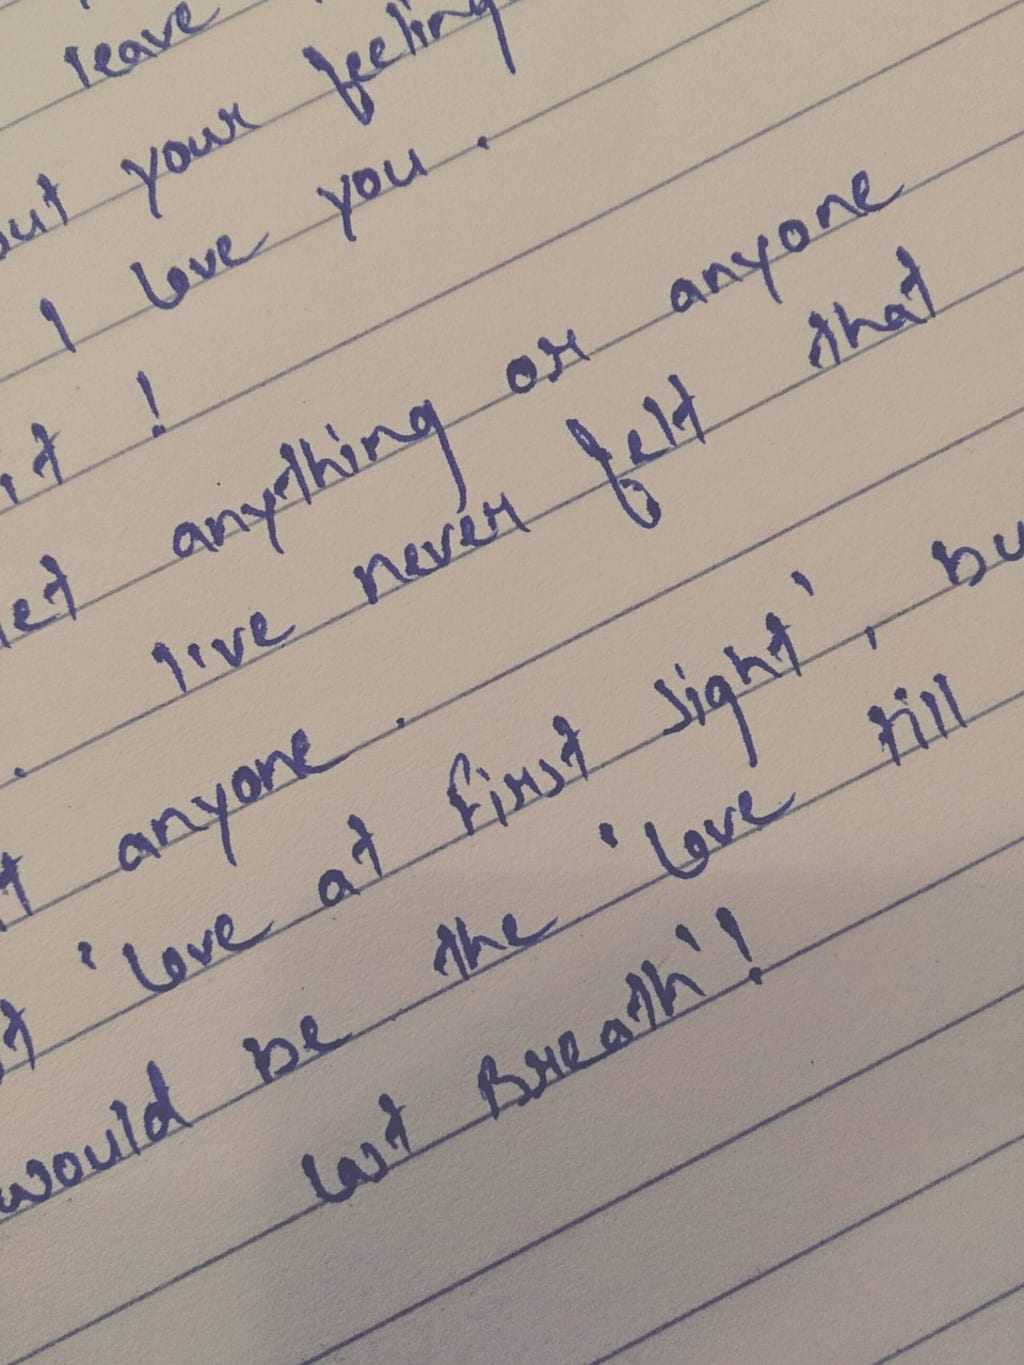 leave
out your feeling
I love you.
it !
let anything or anyone
. live never felt that
anyone.
'love at first sight', bu
would be the 'love till
last Breath'!